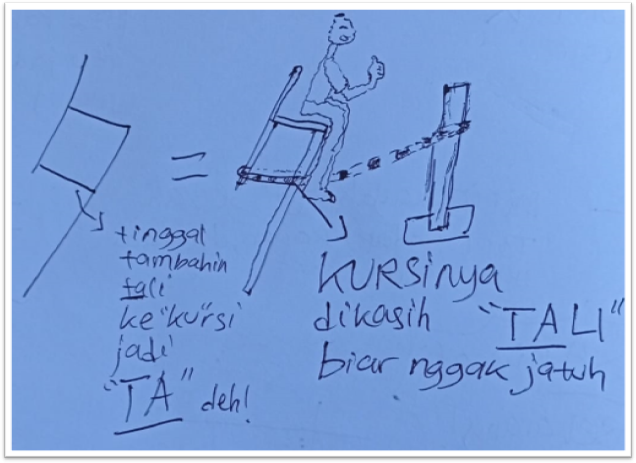 =
tinggal
tambahin
tali
ke "kursi
jadi
"TA" deh!
KURSinya
dikasih "TALI"
biar nggak jatuh